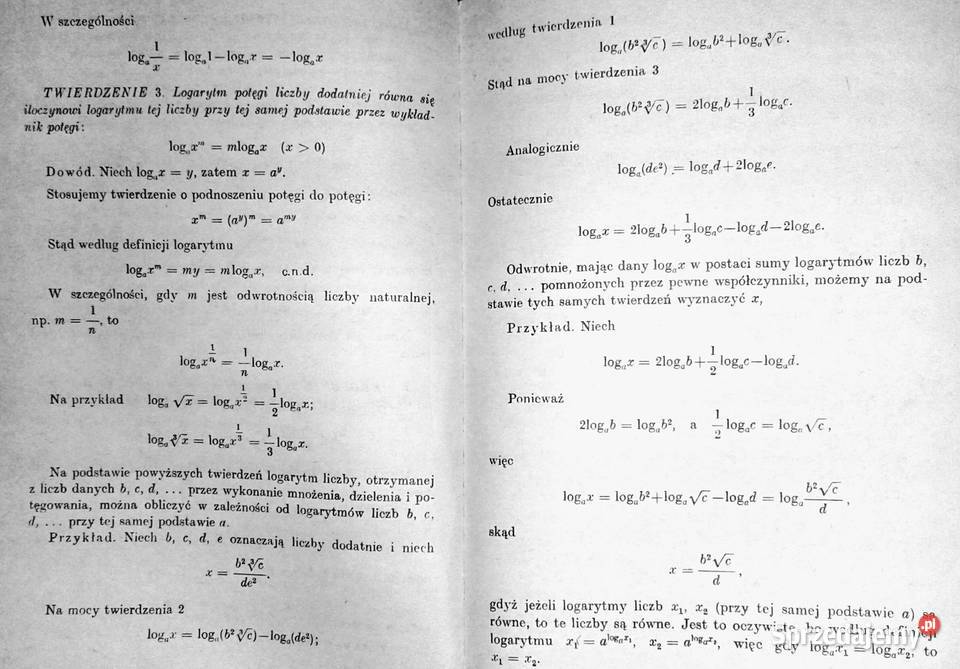 W szczególności
logₐ 1/x = logₐ1 − logₐx = −logₐx
TWIERDZENIE 3. Logarytm potęgi liczby dodatniej równa się
iloczynowi logarytmu tej liczby przy tej samej podstawie przez wykład-
nik potęgi:
logₐxᵐ = mlogₐx (x > 0)
Dowód. Niech logₐx = y, zatem x = aʸ.
Stosujemy twierdzenie o podnoszeniu potęgi do potęgi:
xᵐ = (aʸ)ᵐ = aᵐʸ
Stąd według definicji logarytmu
logₐxᵐ = my = mlogₐx, c.n.d.
W szczególności, gdy m jest odwrotnością liczby naturalnej,
np. m = 1/n, to
logₐx^(1/n) = 1/n logₐx.
Na przykład logₐ √x = logₐx^(1/2) = 1/2 logₐx;
logₐ∛x = logₐx^(1/3) = 1/3 logₐx.
Na podstawie powyższych twierdzeń logarytm liczby, otrzymanej
z liczb danych b, c, d, ... przez wykonanie mnożenia, dzielenia i po-
tęgowania, można obliczyć w zależności od logarytmów liczb b, c,
d, ... przy tej samej podstawie a.
Przykład. Niech b, c, d, e oznaczają liczby dodatnie i niech
x = b²∛c / de².
Na mocy twierdzenia 2
logₐx = logₐ(b²∛c) − logₐ(de²);
według twierdzenia 1
logₐ(b²∛c) = logₐb² + logₐ∛c.
Stąd na mocy twierdzenia 3
logₐ(b²∛c) = 2logₐb + 1/3 logₐc.
Analogicznie
logₐ(de²) = logₐd + 2logₐe.
Ostatecznie
logₐx = 2logₐb + 1/3 logₐc − logₐd − 2logₐe.
Odwrotnie, mając dany logₐx w postaci sumy logarytmów liczb b,
c, d, ... pomnożonych przez pewne współczynniki, możemy na pod-
stawie tych samych twierdzeń wyznaczyć x,
Przykład. Niech
logₐx = 2logₐb + 1/2 logₐc − logₐd.
Ponieważ
2logₐb = logₐb², a 1/2 logₐc = logₐ√c,
więc
logₐx = logₐb² + logₐ√c − logₐd = logₐ b²√c / d,
skąd
x = b²√c / d,
gdyż jeżeli logarytmy liczb x₁, x₂ (przy tej samej podstawie a) są
równe, to te liczby są równe. Jest to oczywiste, bo według definicji
logarytmu x₁ = a^(logₐx₁), x₂ = a^(logₐx₂), więc gdy logₐx₁ = logₐx₂, to
x₁ = x₂.
Sprzedajemy.pl